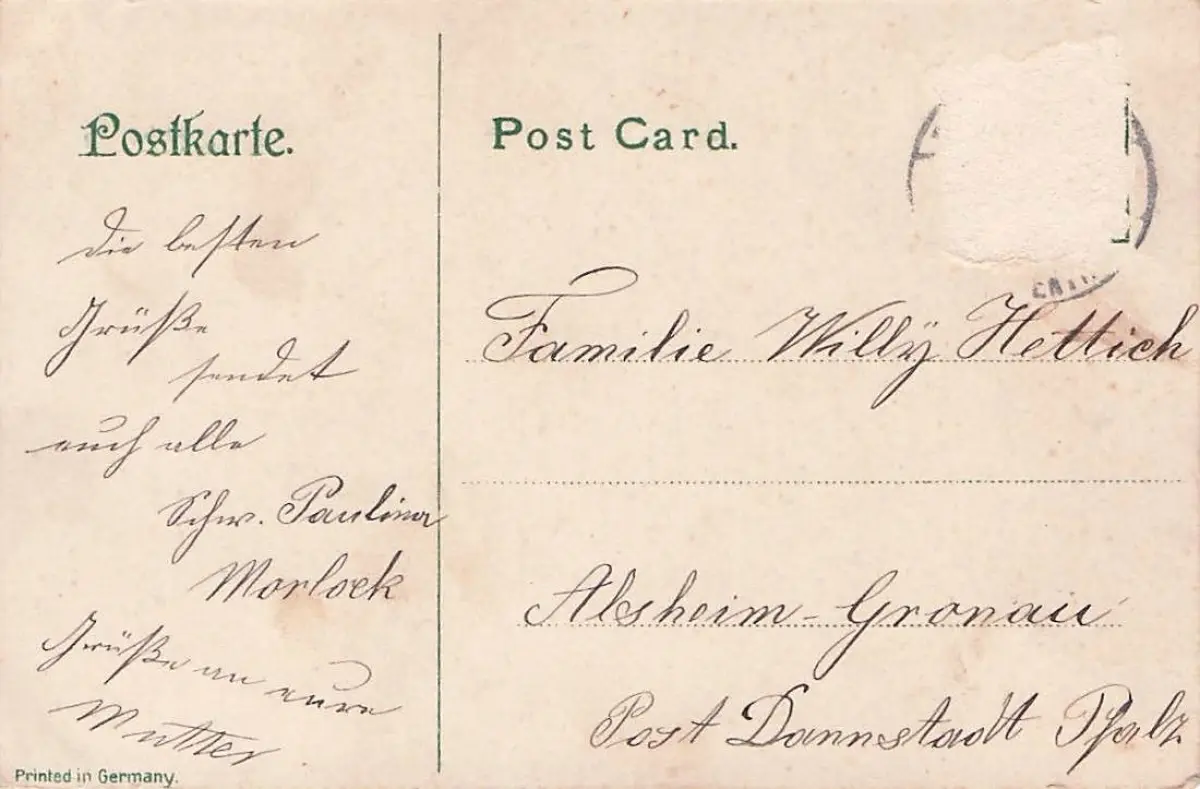 Postkarte.
Post Card.
Die besten
Grüße
sendet
euch alle
Schw. Paulina
Morlock
Grüße an eure
Mutter
Familie Willÿ Hettich
Alsheim-Gronau
Post Dannstadt Pfalz
Printed in Germany.